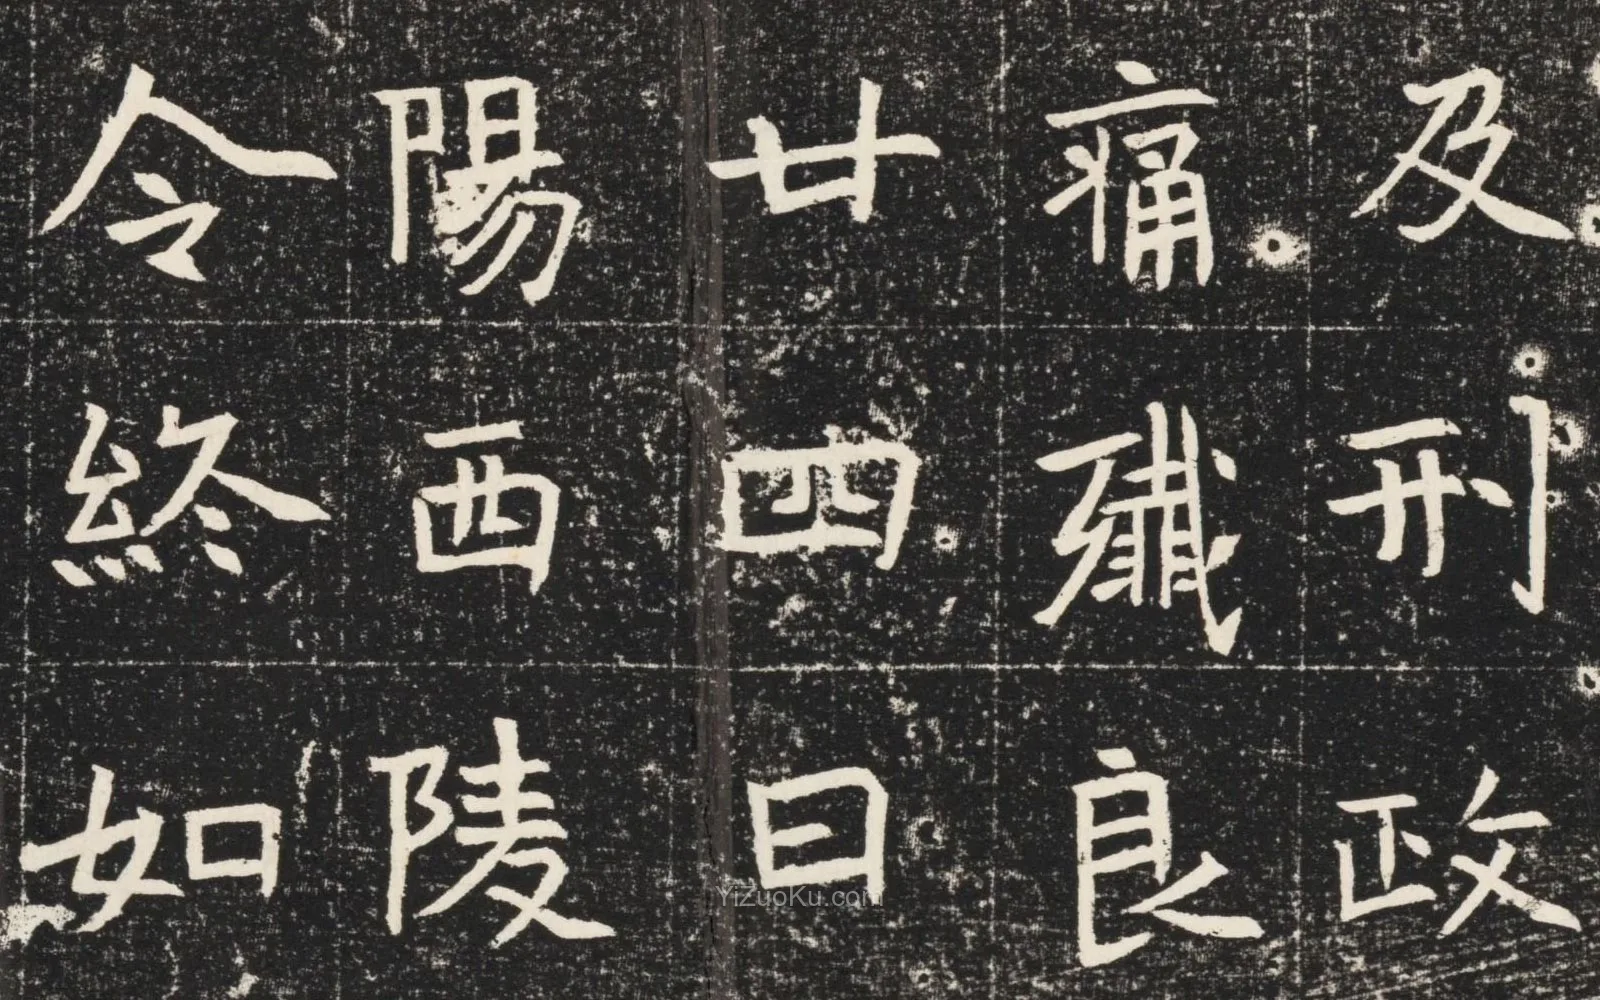 及刑政
痛殲良
廿四日
陽西陵
令終如
YiZuoKu.com